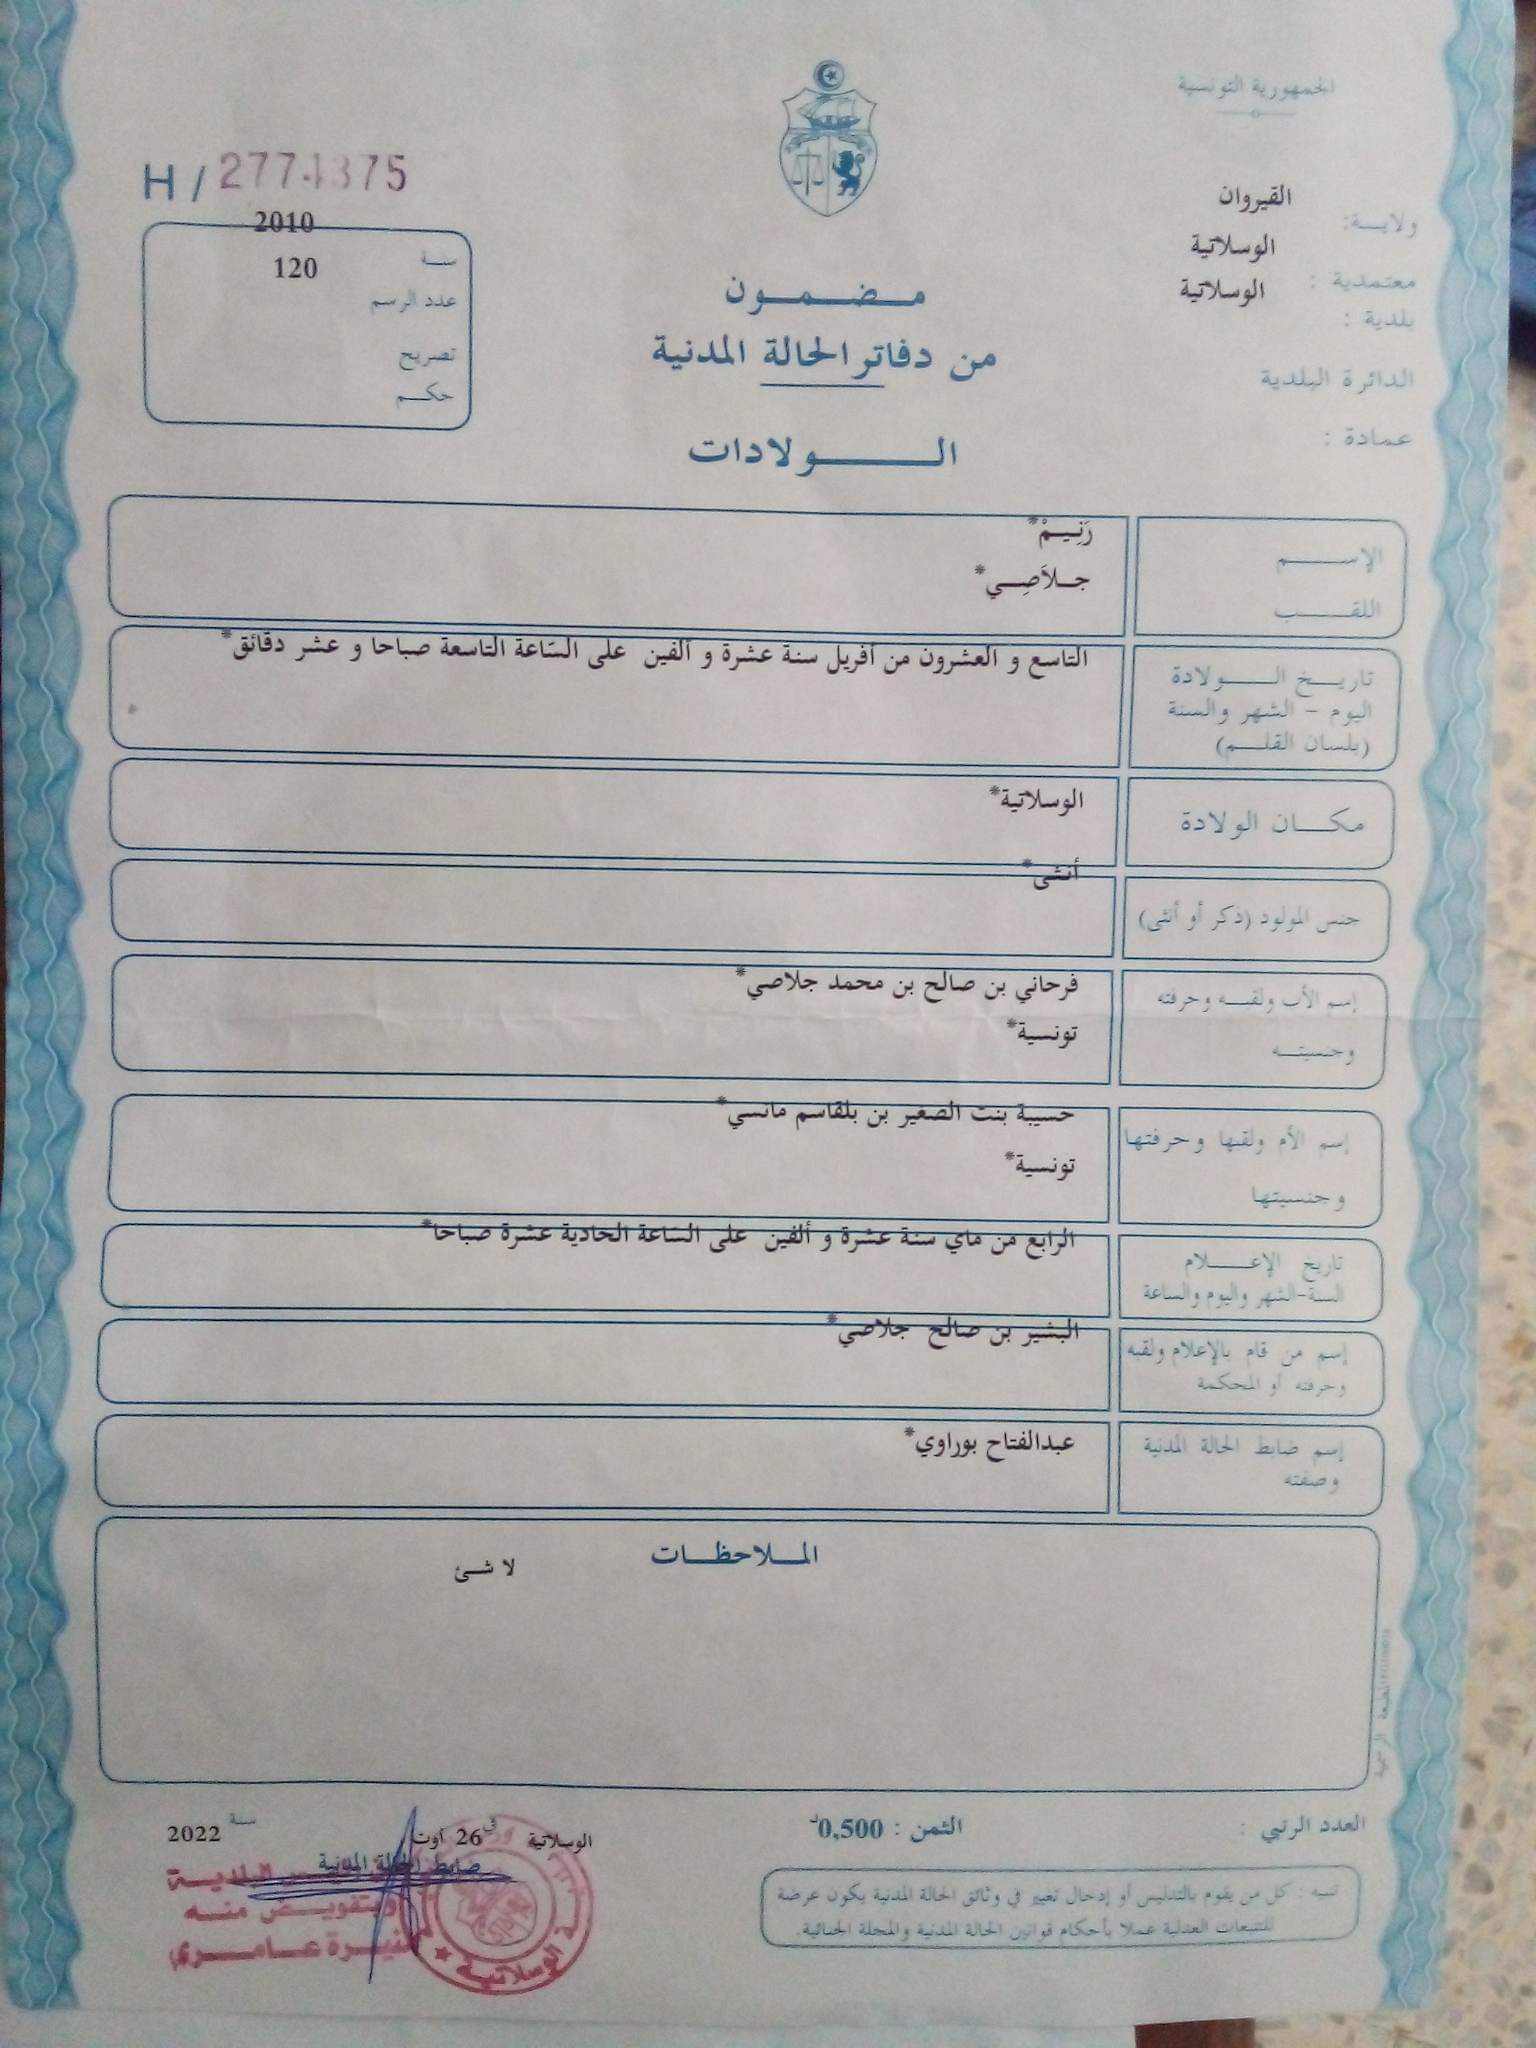 الجمهورية التونسية
ولايـــة: القيروان
معتمدية : الوسلاتية
بلدية : الوسلاتية
الدائرة البلدية
عمادة :
H / 2774375
سنــة 2010
عدد الرسم 120
تصريح
حكــم
مـضـمـون
من دفاتر الحالة المدنية
الـــولادات
الإســـم رَنِيـمْ*
اللقـــب جـلاَصِـي*
تاريــخ الـــولادة
اليوم - الشهر والسنة
(بلسان القلـم)
التاسع و العشرون من أفريل سنة عشرة و ألفين على السّاعة التاسعة صباحا و عشر دقائق*
مكـــان الولادة الوسلاتية*
جنس المولود (ذكر أو أنثى) أنثى*
إسم الأب ولقبــه وحرفته فرحاني بن صالح بن محمد جلاصي*
وجنسيتــه تونسية*
إسم الأم ولقبها وحرفتها حسيبة بنت الصغير بن بلقاسم مانسي*
وجنسيتها تونسية*
تاريخ الإعـــلام
السنة-الشهر واليوم والساعة
الرابع من ماي سنة عشرة و ألفين على السّاعة الحادية عشرة صباحا*
إسم من قام بالإعلام ولقبه
وحرفته أو المحكمة
البشير بن صالح جلاصي*
إسم ضابط الحالة المدنية
وصفته
عبدالفتاح بوراوي*
المـلاحظـات
لا شئ
المطبعة الرسمية
العدد الرتبي :
الثمن : 0,500د
الوسلاتية في 26 أوت سنة 2022
ضابط الحالة المدنية
البلدية
وبتفويض منه
منيرة عـامـري
الوسلاتيـة
تنبيه : كل من يقوم بالتدليس أو إدخال تغيير في وثائق الحالة المدنية يكون عرضة
للتتبعات العدلية عملا بأحكام قوانين الحالة المدنية والمجلة الجنائية.